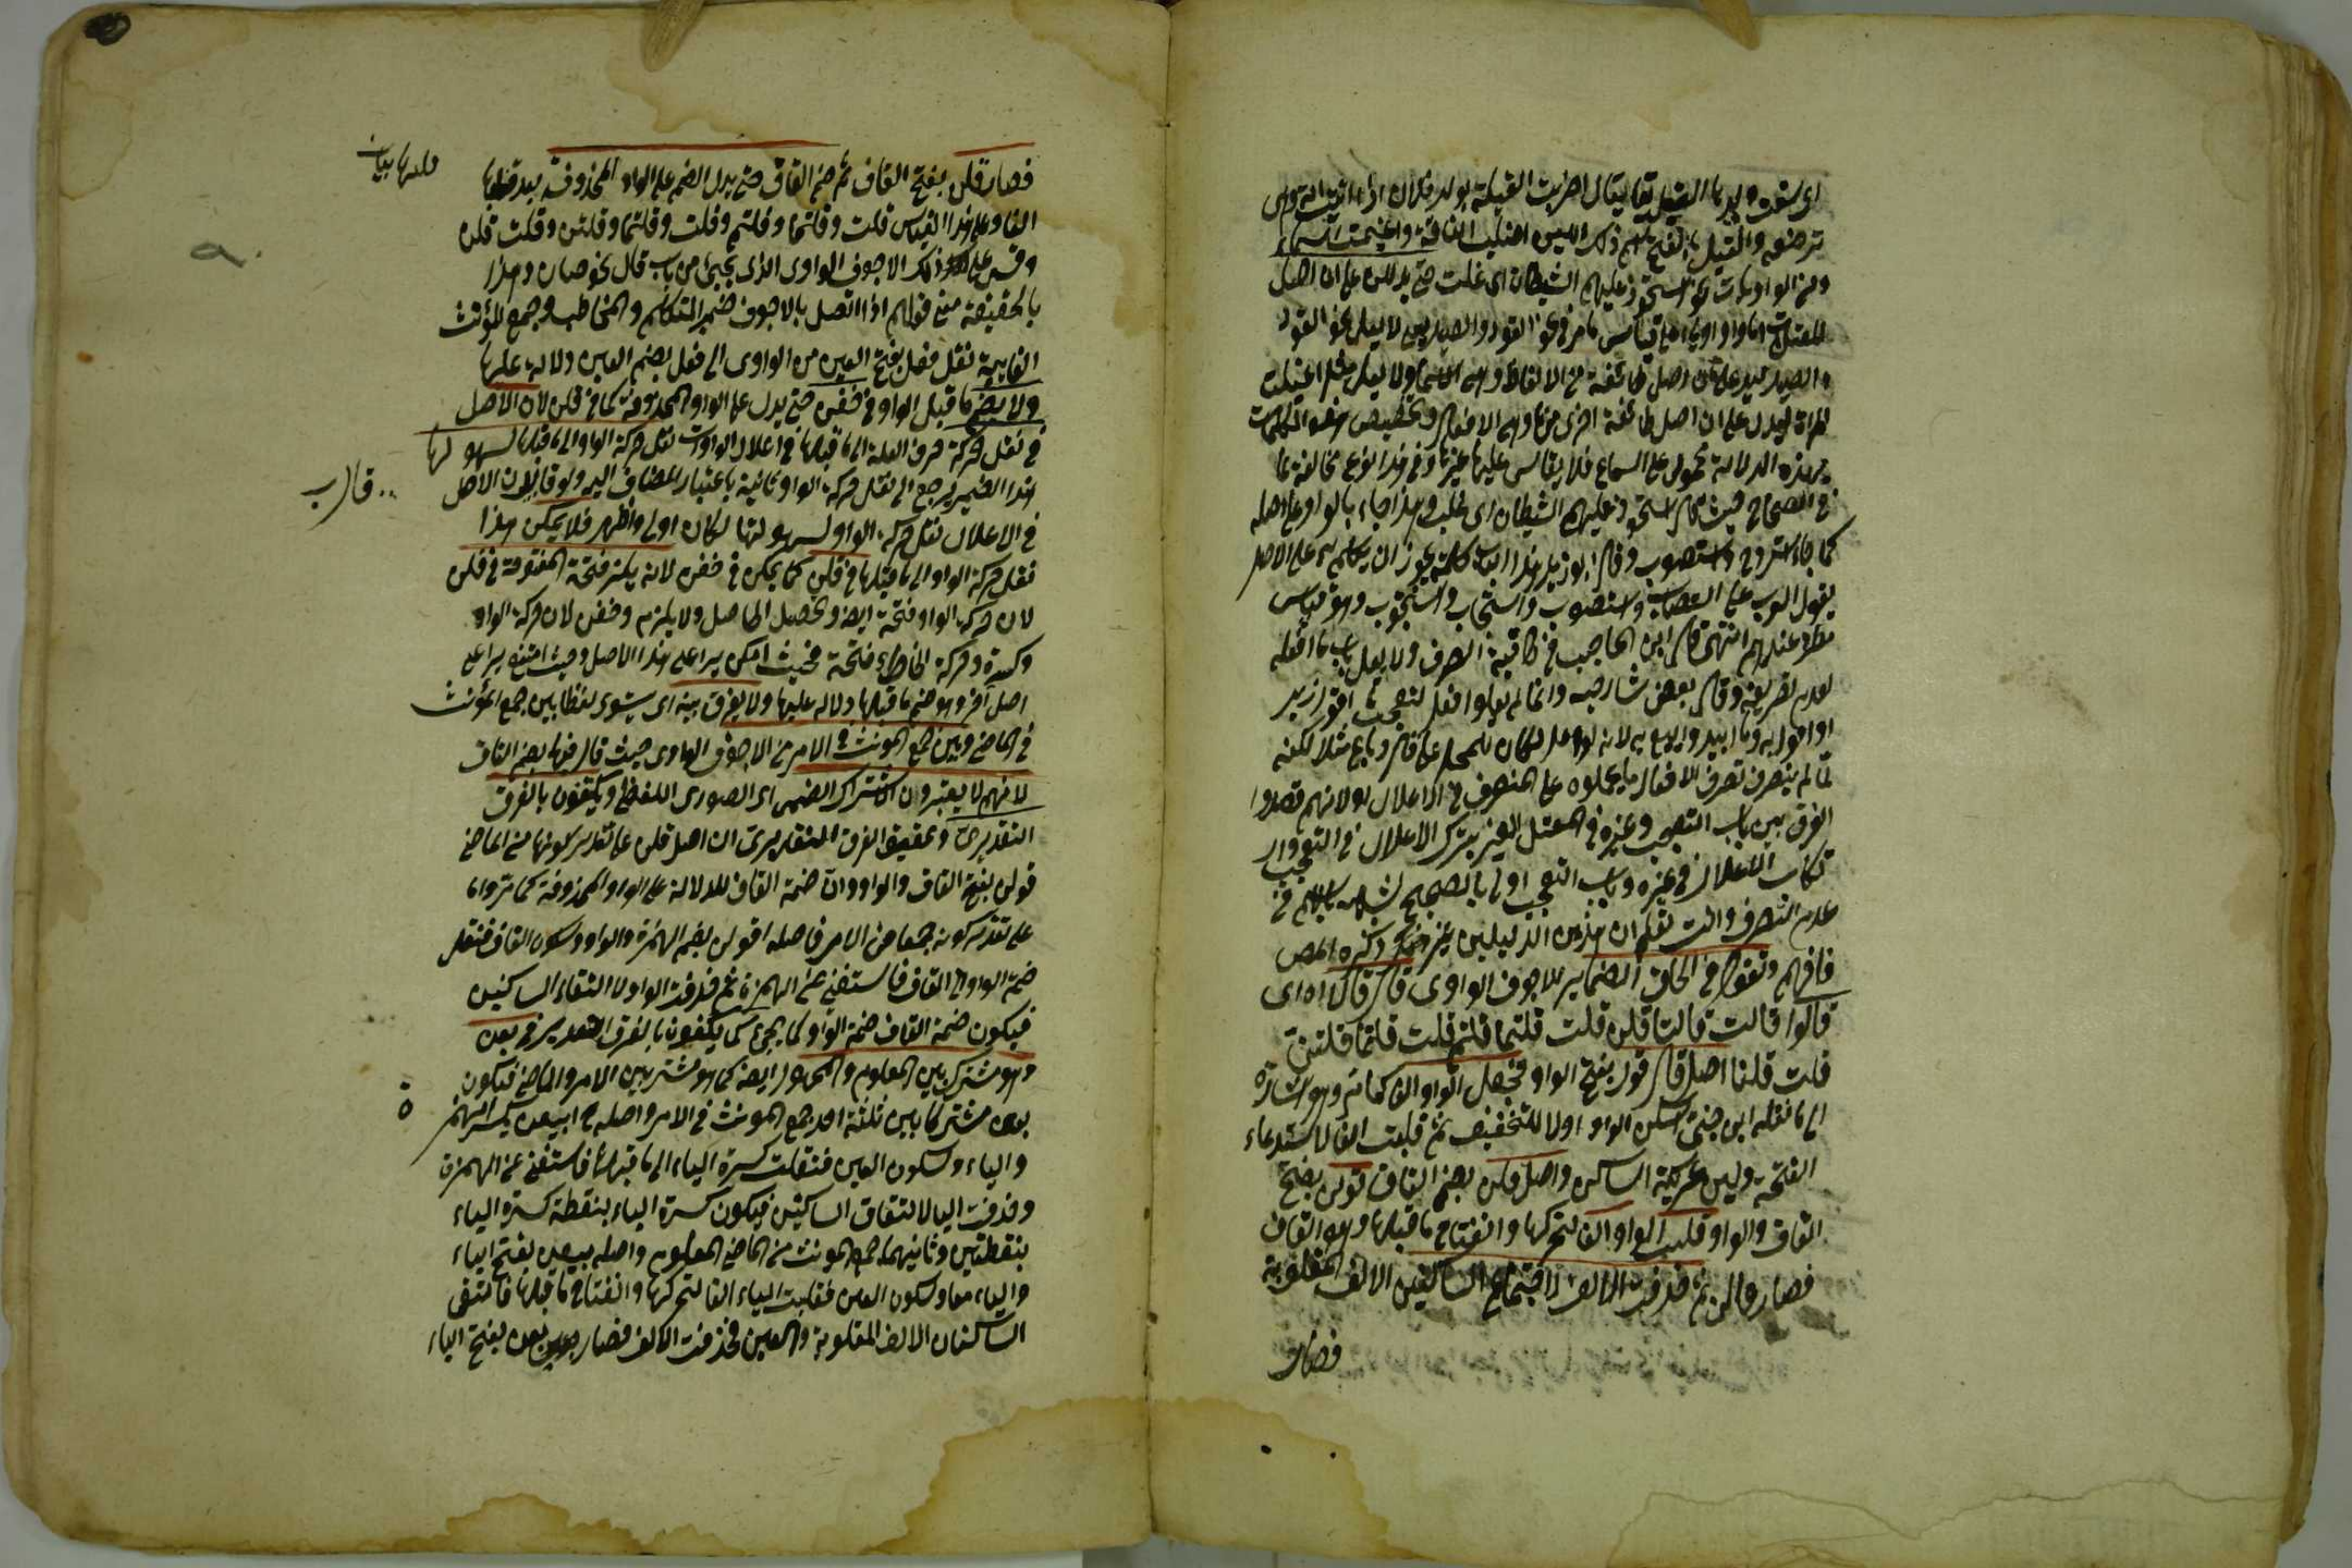 اى سقت ولدها الغيل يقال اضرت الغيلة بولد فلان اذا اتيت امه وهى
ترضعه والغيل بالفتح اسم ذلك اللبن واغيلت الناقة واغيمت السماء
ومن الواويات نحو استحوذ عليهم الشيطان اى غلب حتى يدللن على ان اصل
المعتلات اما واو او ياء قياس ما مر فى نحو القود والصيد لا يعل نحو القود
والصيد ليدل على ان اصل طائفة من الالفاظ وهى الاسماء ولا يعل مثل اغيلت
المراة ليدل على ان اصل طائفة اخرى منها وهى الافعال وتخصيص هذه الكلمات
بهذه الدلالة محمول على السماع فلا يقاس عليها غيرها وفى هذا النوع مخالفة لما
فى الصحاح حيث قال استحوذ عليهم الشيطان اى غلب وهذا جاء بالواو على اصله
كما جاء استروح واستصوب وقال ابو زيد هذا الباب كله يجوز ان يتكلم به على الاصل
يقول العرب استصاب واستصوب واستجاب واستجوب وهو قياس
مطرد عندهم انتهى قال ابن الحاجب فى شافية الصرف ولا يعل باب ما افعله
لعدم تصرفه وقال بعض شارحيه وانما لم يعلوا افعل لتعجب ما اقول زيد
او اقول به وما ابيع وابيع به لانه لو اعل لكان للحمل على قال وباع مثلا لكنه
لما لم يتصرف تصرف الافعال لم يحملوه على المتصرف فى الاعلال او لانهم قصدوا
الفرق بين باب التعجب وغيره فى المعتل العين بترك الاعلال فى التعجب وار
تكاب الاعلال فى غيره وباب التعجب اولى بالتصحيح لشبهه بالاسم فى
عدم التصرف وانت تعلم ان هذين الدليلين غير ما ذكره المص
فافهم وتقول فى الحاق الضماير للاجوف الواوى قال قالا اه اى
قالوا قالت قالتا قلن قلت قلتما قلتم قلت قلتما قلتن
قلت قلنا اصل قال قول بفتح الواو فجعل الواو الفا كما مر وهو اشارة
الى ما نقله ابن جنى اسكن الواو اولا للتخفيف ثم قلبت الفا لاستدعاء
الفتحة ولين عريكة الساكن واصل قلن بضم القاف قولن بفتح
القاف والواو قلبت الواو الفا لتحركها وانفتاح ما قبلها وهو القاف
فصار قالن ثم حذفت الالف لاجتماع الساكنين الالف المقلوبة
فصار
فصار قلن بفتح القاف ثم ضم القاف حتى يدل الضم على الواو المحذوفة بعد قلبها
الفا وعلى هذا القياس قلت وقلتما وقلتم وقلت وقلتما وقلتن وقلت قلن
وقس على ذلك الاجوف الواوى الذى يجيئ من باب قال نحو صان وهذا
بالحقيقة معنى قولهم اذا اتصل بالاجوف ضمير المتكلم والمخاطب وجمع المؤنث
الغايبة نقل فعل بفتح العين من الواوى الى فعل بضم العين دلالة عليها
ولا يضم ما قبل الواو فى خفن حتى يدل على الواو المحذوفة كما فى قلن لان الاصل
فى نقل حركة حرف العلة الى ما قبلها فى اعلال الواوات نقل حركة الواو الى ما قبلها لسهولتها
هذا الضمير يرجع الى نقل حركة الواو تانيثه باعتبار المضاف اليه ولو قال لان الاصل
فى الاعلال نقل حركة الواو لسهولتها لكان اولى واظهر فلا يمكن هذا
نقل حركة الواو الى ما قبلها فى قلن كما يمكن فى خفن لانه يلزم فتحة المفتوحة فى قلن
لان حركة الواو فتحة ايضا وتحصيل الحاصل ولا يلزم وخفن لان حركة الواو
وكسرة وحركة الخاء فتحة فحيث امكن يراعى هذا الاصل وحيث امتنع يراعى
اصل آخر وهو ضم ما قبلها دلالة عليها ولا يفرق بينه اى يستوى لفظا بين جمع المؤنث
فى الماضى وبين جمع المونث فى الامر من الاجوف الواوى حيث قال فيها بضم القاف
لانهم لا يعتبرون الاشتراك الضمنى اى الصورى اللفظى ويكتفون بالفرق
التقديرى وتحقيق الفرق التقديرى ان اصل قلن على تقدير كونها من الماضى
قولن بفتح القاف والواو وان ضمة القاف للدلالة على الواو المحذوفة كما مر واما
على تقدير كونه جمعا من الامر فاصله اقولن بضم الهمزة والواو وسكون القاف فنقل
ضمة الواو الى القاف فاستغنى عن الهمزة ثم حذفت الواو لالتقاء الساكنين
فيكون ضمة القاف ضمة الواو كما يجئ كما يكتفون بالفرق التقديرى فى بعن
وهو مشترك بين المعلوم والمجهول ايضا كما هو مشترك بين الامر والماضى فيكون
بعن مشتركا بين ثلثة احد جمع المونث فى الامر واصله ابيعن بكسر الهمز
والياء وسكون العين فنقلت كسرة الياء الى ما قبلها فاستغنى عن الهمزة
وحذفت اليا لالتقاء الساكنين فيكون كسرة الباء بنقطة كسرة الياء
بنقطتين وثانيهما جمع المونث من الماضى المعلوم واصله بيعن بفتح الباء
والياء معا وسكون العين فقلبت الياء الفا لتحركها وانفتاح ما قبلها فالتقى
الساكنان الالف المقلوبة والعين فحذفت الالف فصار بعن بفتح الباء